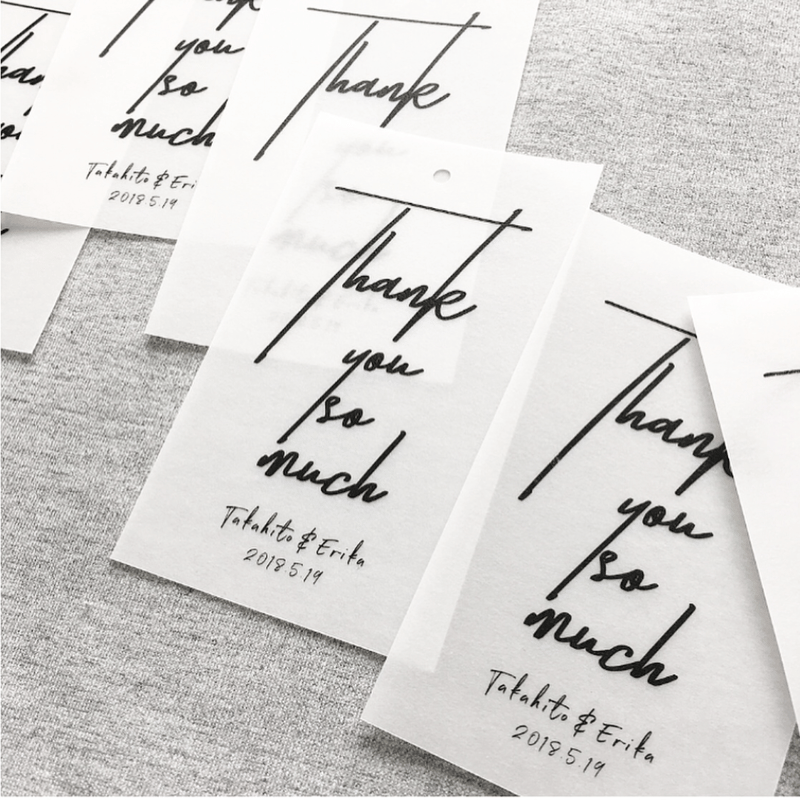 you
so
much
Takahito & Eri
2018.5.19
Thank
Thank
you
so
much
Takahito & Erika
2018.5.19
Thank
you
so
much
Takahito & Erika
2018.5.19